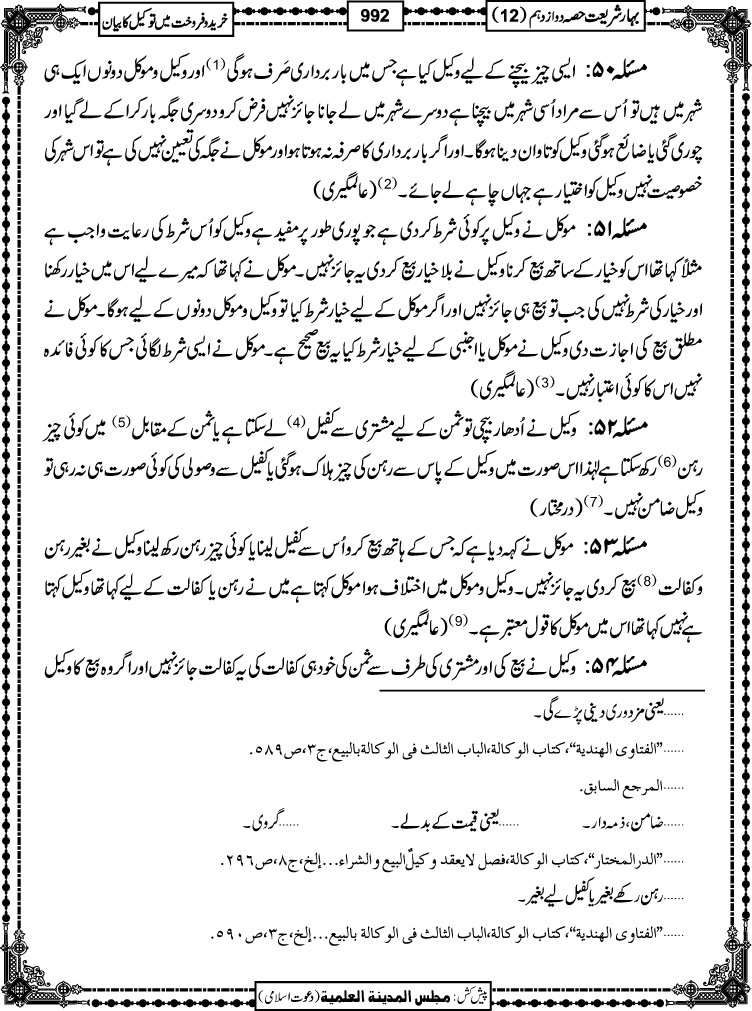 بہار شریعت حصہ دوازدہم (12)
992
خرید و فروخت میں توکیل کا بیان
مسئلہ ۵۰: ایسی چیز بیچنے کے لیے وکیل کیا ہے جس میں بار برداری صَرف ہوگی (1) اور وکیل و موکل دونوں ایک ہی
شہر میں ہیں تو اُس سے مراد اُسی شہر میں بیچنا ہے دوسرے شہر میں لے جانا جائز نہیں فرض کرو دوسری جگہ بار کرا کے لے گیا اور
چوری گئی یا ضائع ہوگئی وکیل کو تاوان دینا ہوگا۔ اور اگر بار برداری کا صرفہ نہ ہوتا ہو اور موکل نے جگہ کی تعیین نہیں کی ہے تو اس شہر کی
خصوصیت نہیں وکیل کو اختیار ہے جہاں چاہے لے جائے۔ (2) (عالمگیری)
مسئلہ ۵۱: موکل نے وکیل پر کوئی شرط کردی ہے جو پوری طور پر مفید ہے وکیل کو اُس شرط کی رعایت واجب ہے
مثلاً کہا تھا اس کو خیار کے ساتھ بیع کرنا وکیل نے بلا خیار بیع کردی یہ جائز نہیں۔ موکل نے کہا تھا کہ میرے لیے اس میں خیار رکھنا
اور خیار کی شرط نہیں کی جب تو بیع ہی جائز نہیں اور اگر موکل کے لیے خیار شرط کیا تو وکیل و موکل دونوں کے لیے ہوگا۔ موکل نے
مطلق بیع کی اجازت دی وکیل نے موکل یا اجنبی کے لیے خیار شرط کیا یہ بیع صحیح ہے۔ موکل نے ایسی شرط لگائی جس کا کوئی فائدہ
نہیں اس کا کوئی اعتبار نہیں۔ (3) (عالمگیری)
مسئلہ ۵۲: وکیل نے اُدھار بیچی تو ثمن کے لیے مشتری سے کفیل (4) لے سکتا ہے یا ثمن کے مقابل (5) میں کوئی چیز
رہن (6) رکھ سکتا ہے لہٰذا اس صورت میں وکیل کے پاس سے رہن کی چیز ہلاک ہوگئی یا کفیل سے وصولی کی کوئی صورت ہی نہ رہی تو
وکیل ضامن نہیں۔ (7) (درمختار)
مسئلہ ۵۳: موکل نے کہہ دیا ہے کہ جس کے ہاتھ بیع کرو اُس سے کفیل لینا یا کوئی چیز رہن رکھ لینا وکیل نے بغیر رہن
و کفالت (8) بیع کردی یہ جائز نہیں۔ وکیل و موکل میں اختلاف ہوا موکل کہتا ہے میں نے رہن یا کفالت کے لیے کہا تھا وکیل کہتا
ہے نہیں کہا تھا اس میں موکل کا قول معتبر ہے۔ (9) (عالمگیری)
مسئلہ ۵۴: وکیل نے بیع کی اور مشتری کی طرف سے ثمن کی خود ہی کفالت کی یہ کفالت جائز نہیں اور اگر وہ بیع کا وکیل
......یعنی مزدوری دینی پڑے گی۔
......"الفتاوی الهندية"، کتاب الوکالة، الباب الثالث فی الوکالة بالبیع، ج۳، ص۵۸۹.
......المرجع السابق.
......ضامن، ذمہ دار۔ ......یعنی قیمت کے بدلے۔ ......گروی۔
......"الدرالمختار"، کتاب الوکالة، فصل لایعقد وکیلٌ البیع والشراء...إلخ، ج۸، ص۲۹۶.
......رہن رکھے بغیر یا کفیل لیے بغیر۔
......"الفتاوی الهندية"، کتاب الوکالة، الباب الثالث فی الوکالة بالبیع...إلخ، ج۳، ص۵۹۰.
پیش کش: مجلس المدینة العلمیة (دعوت اسلامی)